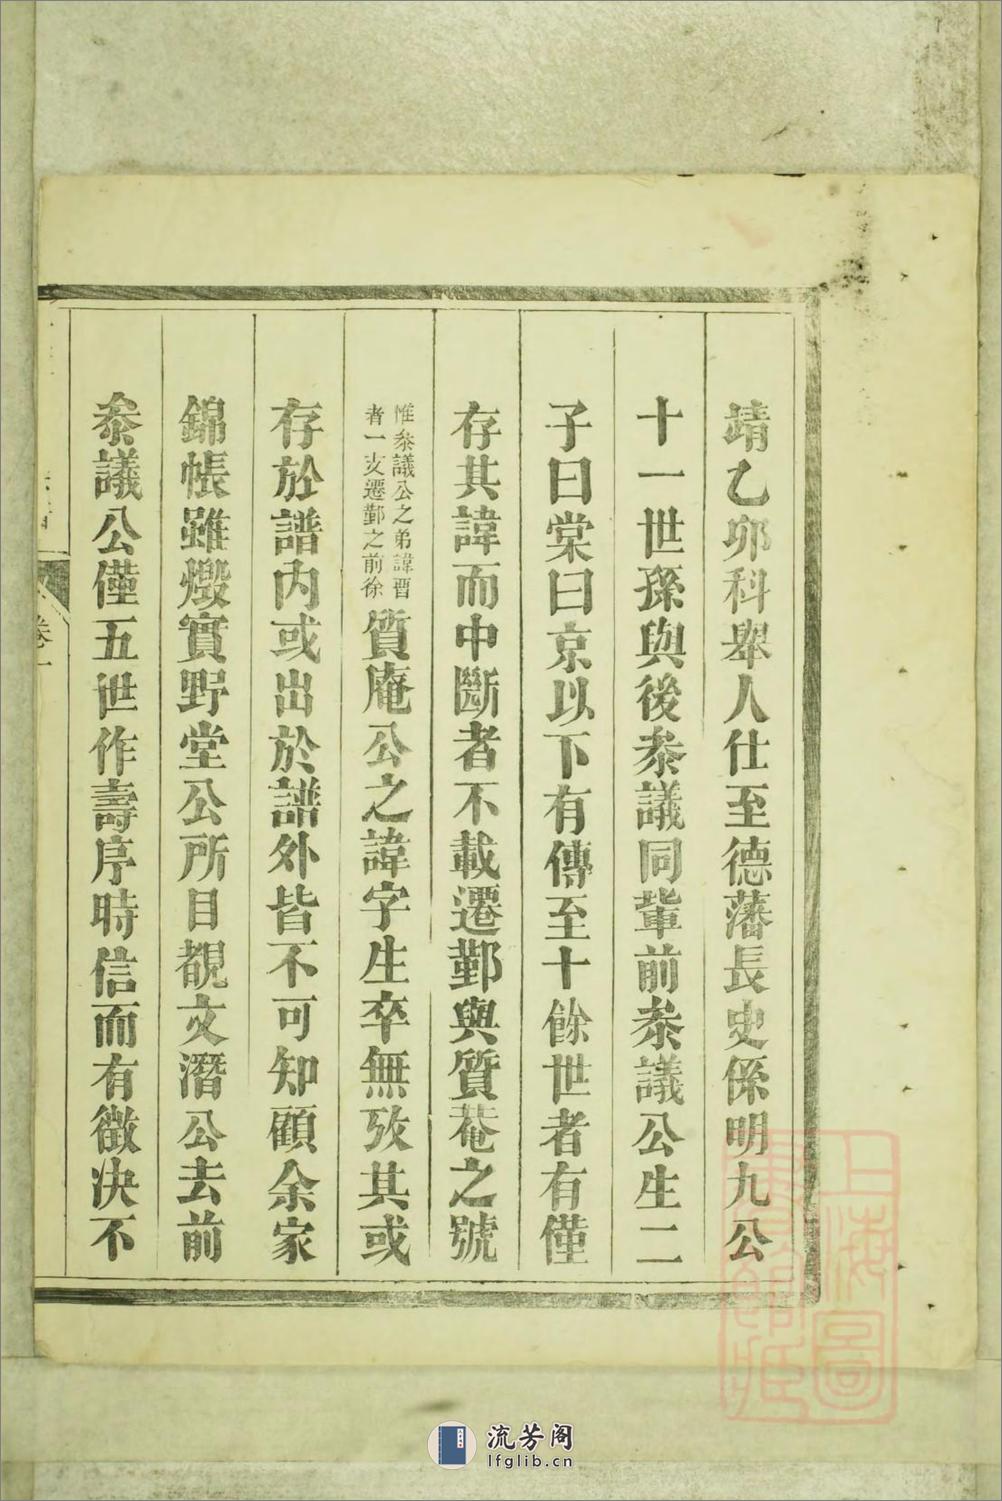 靖乙卯科舉人仕至德藩長史係明九公
十一世孫與後叅議同輩前叅議公生二
子曰棠曰京以下有傳至十餘世者有僅
存其諱而中斷者不載遷鄞與質菴之號
惟叅議公之弟諱晋
者一支遷鄞之前徐
質庵公之諱字生卒無攷其或
存於譜內或出於譜外皆不可知顧余家
錦帳雖燬實野堂公所目覩文潛公去前
叅議公僅五世作壽序時信而有徵決不
卷一
上海圖
書館藏
流芳阁
lfglib.cn